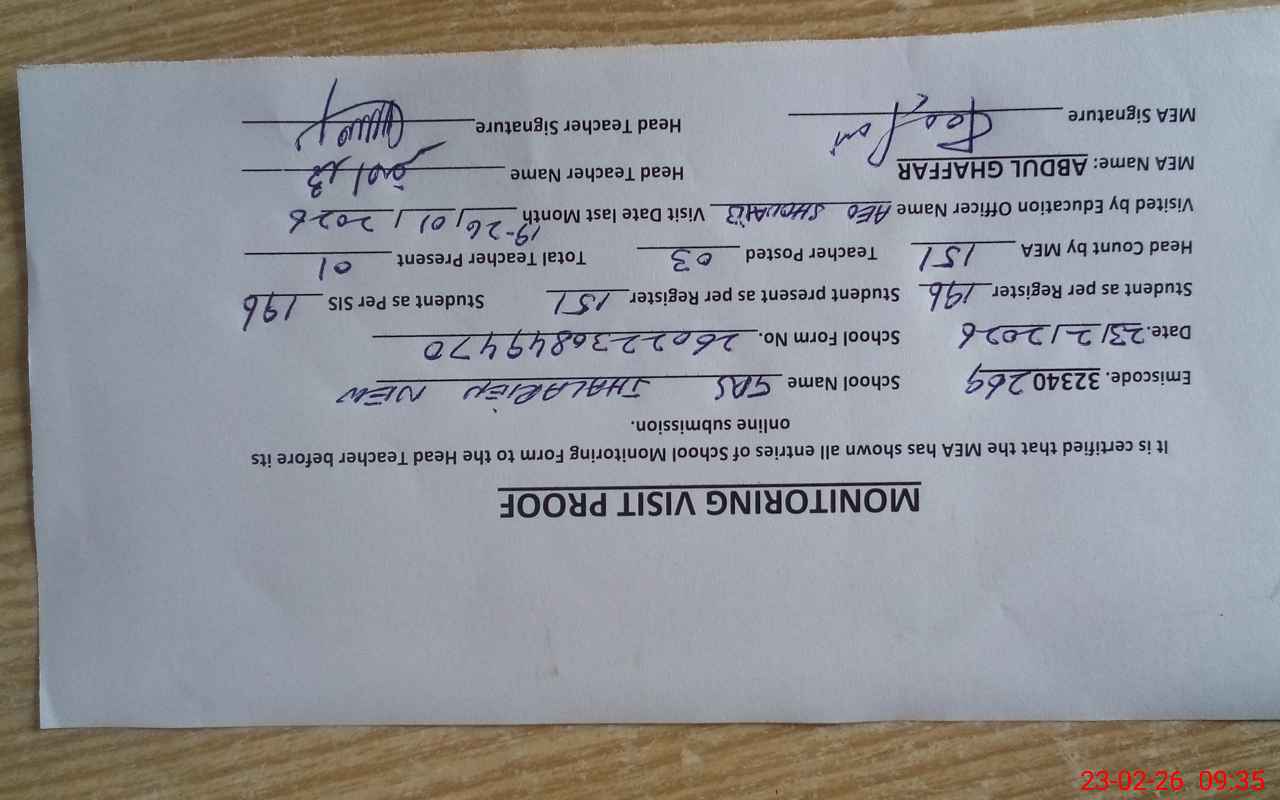 MONITORING VISIT PROOF
It is certified that the MEA has shown all entries of School Monitoring Form to the Head Teacher before its
online submission.
Emiscode. 32340269 School Name GPS THALARIEN NEW
Date. 23/2/2026 School Form No. 2602236849470
Student as per Register 196 Student as present as per Register 151 Student as Per SIS 196
Head Count by MEA 151 Teacher Posted 03 Total Teacher Present 01
Visited by Education Officer Name AEO Visit Date last Month 19-26/01/2026
MEA Name: ABDUL GHAFFAR Head Teacher Name
MEA Signature Head Teacher Signature
23-02-26 09:35